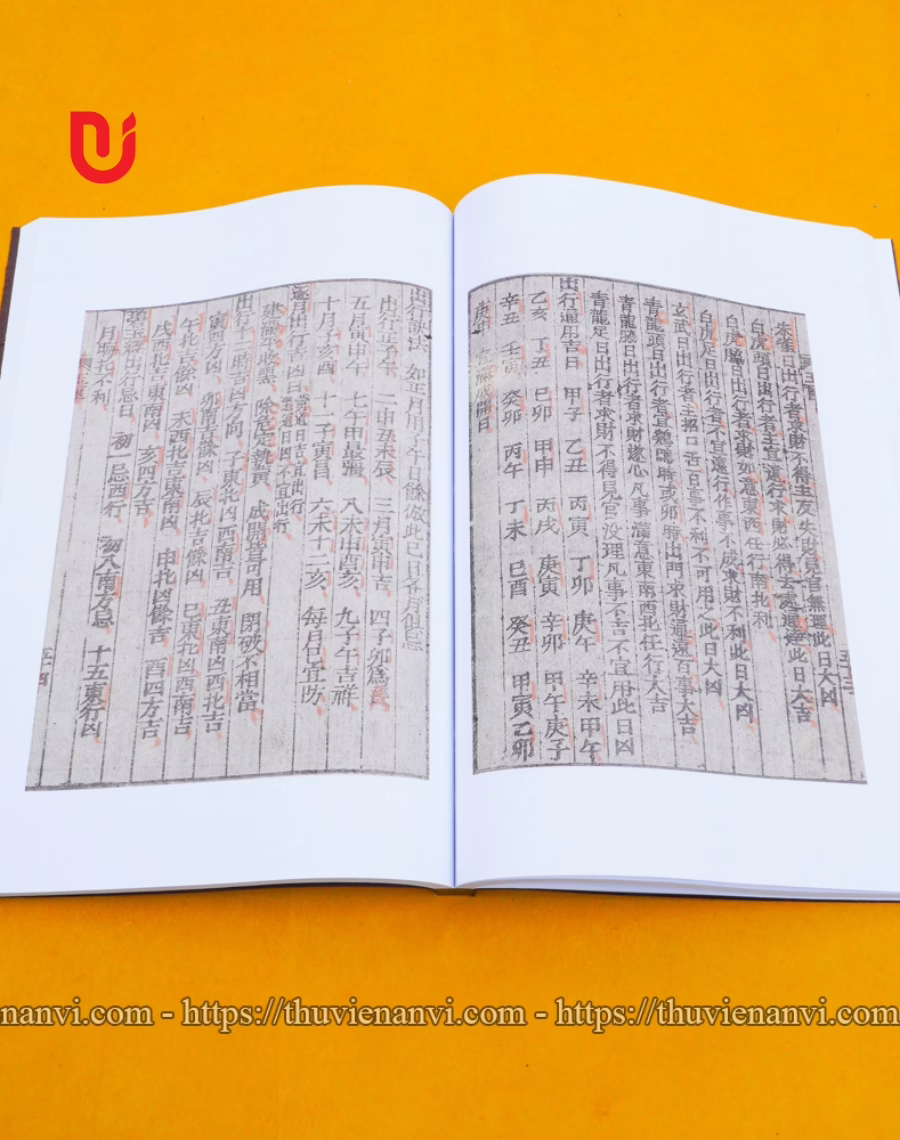 朱雀日出行者求財不得主反失財見官無理此日大凶
白虎頭日出行者主宜遠行求財必得去處通達此日大吉
白虎脇日出行者求財如意東西任行南北利
白虎足日出行者不宜遠行作事不成求財不利此日大凶
玄武日出行者主招口舌日事不利不可用之此日大凶
青龍頭日出行者宜鷄鳴時或卯時出門求財通達百事大吉
青龍脇日出行者求財遂心凡事滿意東南西北任行大吉
青龍足日出行者求財不得見官没理凡事不吉不宜用此日凶
出行通用吉日 甲子 乙丑 丙寅 丁卯 庚午 辛未 甲午
乙亥 丁丑 己卯 甲申 丙戌 庚寅 辛卯 甲午庚子
辛丑 壬寅 癸卯 丙午 丁未 己酉 癸丑 甲寅乙卯
庚申 開日
出行訣法 如正月用子午日餘倣此已日各有俱忌
出行正子午 二申丑未辰 三月寅申吉 四子卯為
五月寅申午 七午甲最強 八未申酉亥 九子午吉祥
十月子亥酉 十一子寅昌 六未十二亥 每月任宜防
逐月出行吉凶日 當逐日吉宜出行
逐日凶不宜出行
建滿平收黑 除危定執黃 成開皆可用 閉破不相當
出行十二時吉凶方向 子東北凶西南吉 丑東南凶西北吉
寅方凶 卯南吉餘凶 辰北吉餘凶 巳東北凶西南吉
午北吉餘凶 未西北吉東南凶 申北凶餘吉 酉四方吉
戌西北吉東南凶 亥四方吉
出行忌日 初一忌西行 初八南方忌 十五東行凶
月晦北不利
nanvi.com - https://thuvienanvi.com - https://thuvienanvi.com